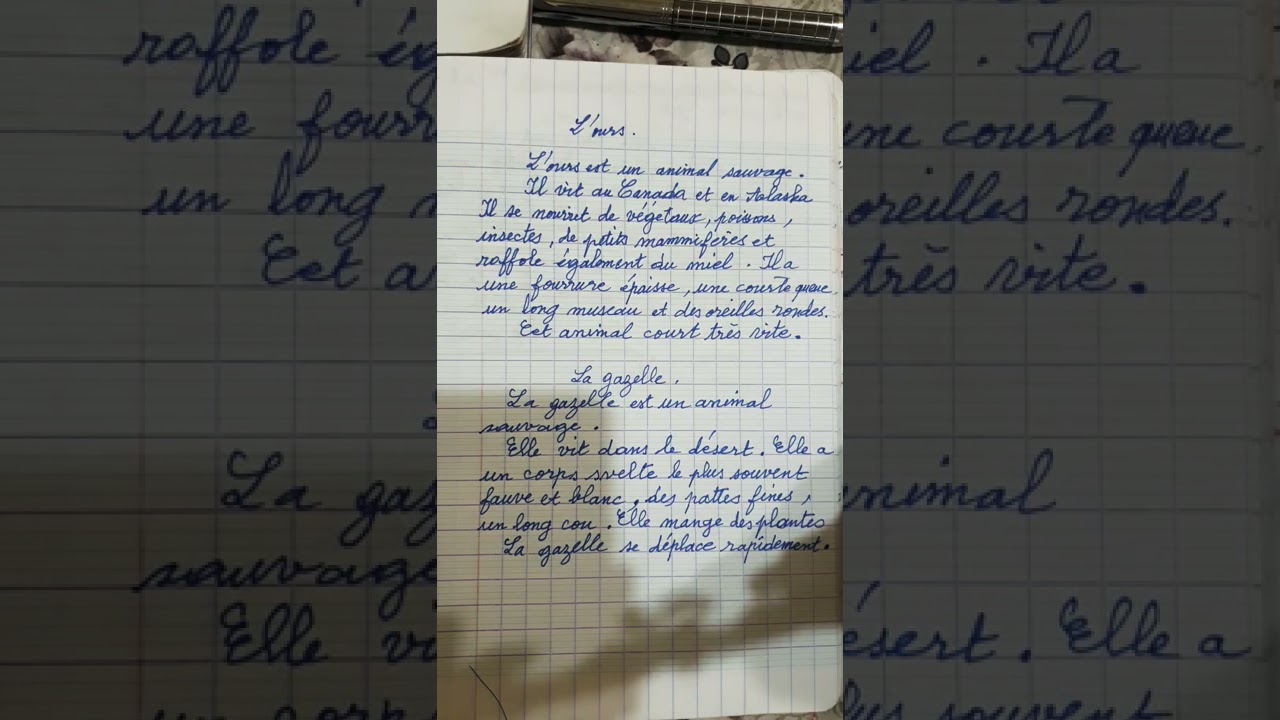 L'ours.
L'ours est un animal sauvage.
Il vit au Canada et en Alaska
Il se nourrit de végétaux, poissons,
insectes, de petits mammifères et
raffole également du miel. Il a
une fourrure épaisse, une courte queue,
un long museau et des oreilles rondes.
Cet animal court très vite.
La gazelle.
La gazelle est un animal
sauvage.
Elle vit dans le désert. Elle a
un corps svelte le plus souvent
fauve et blanc, des pattes fines,
un long cou. Elle mange des plantes
La gazelle se déplace rapidement.